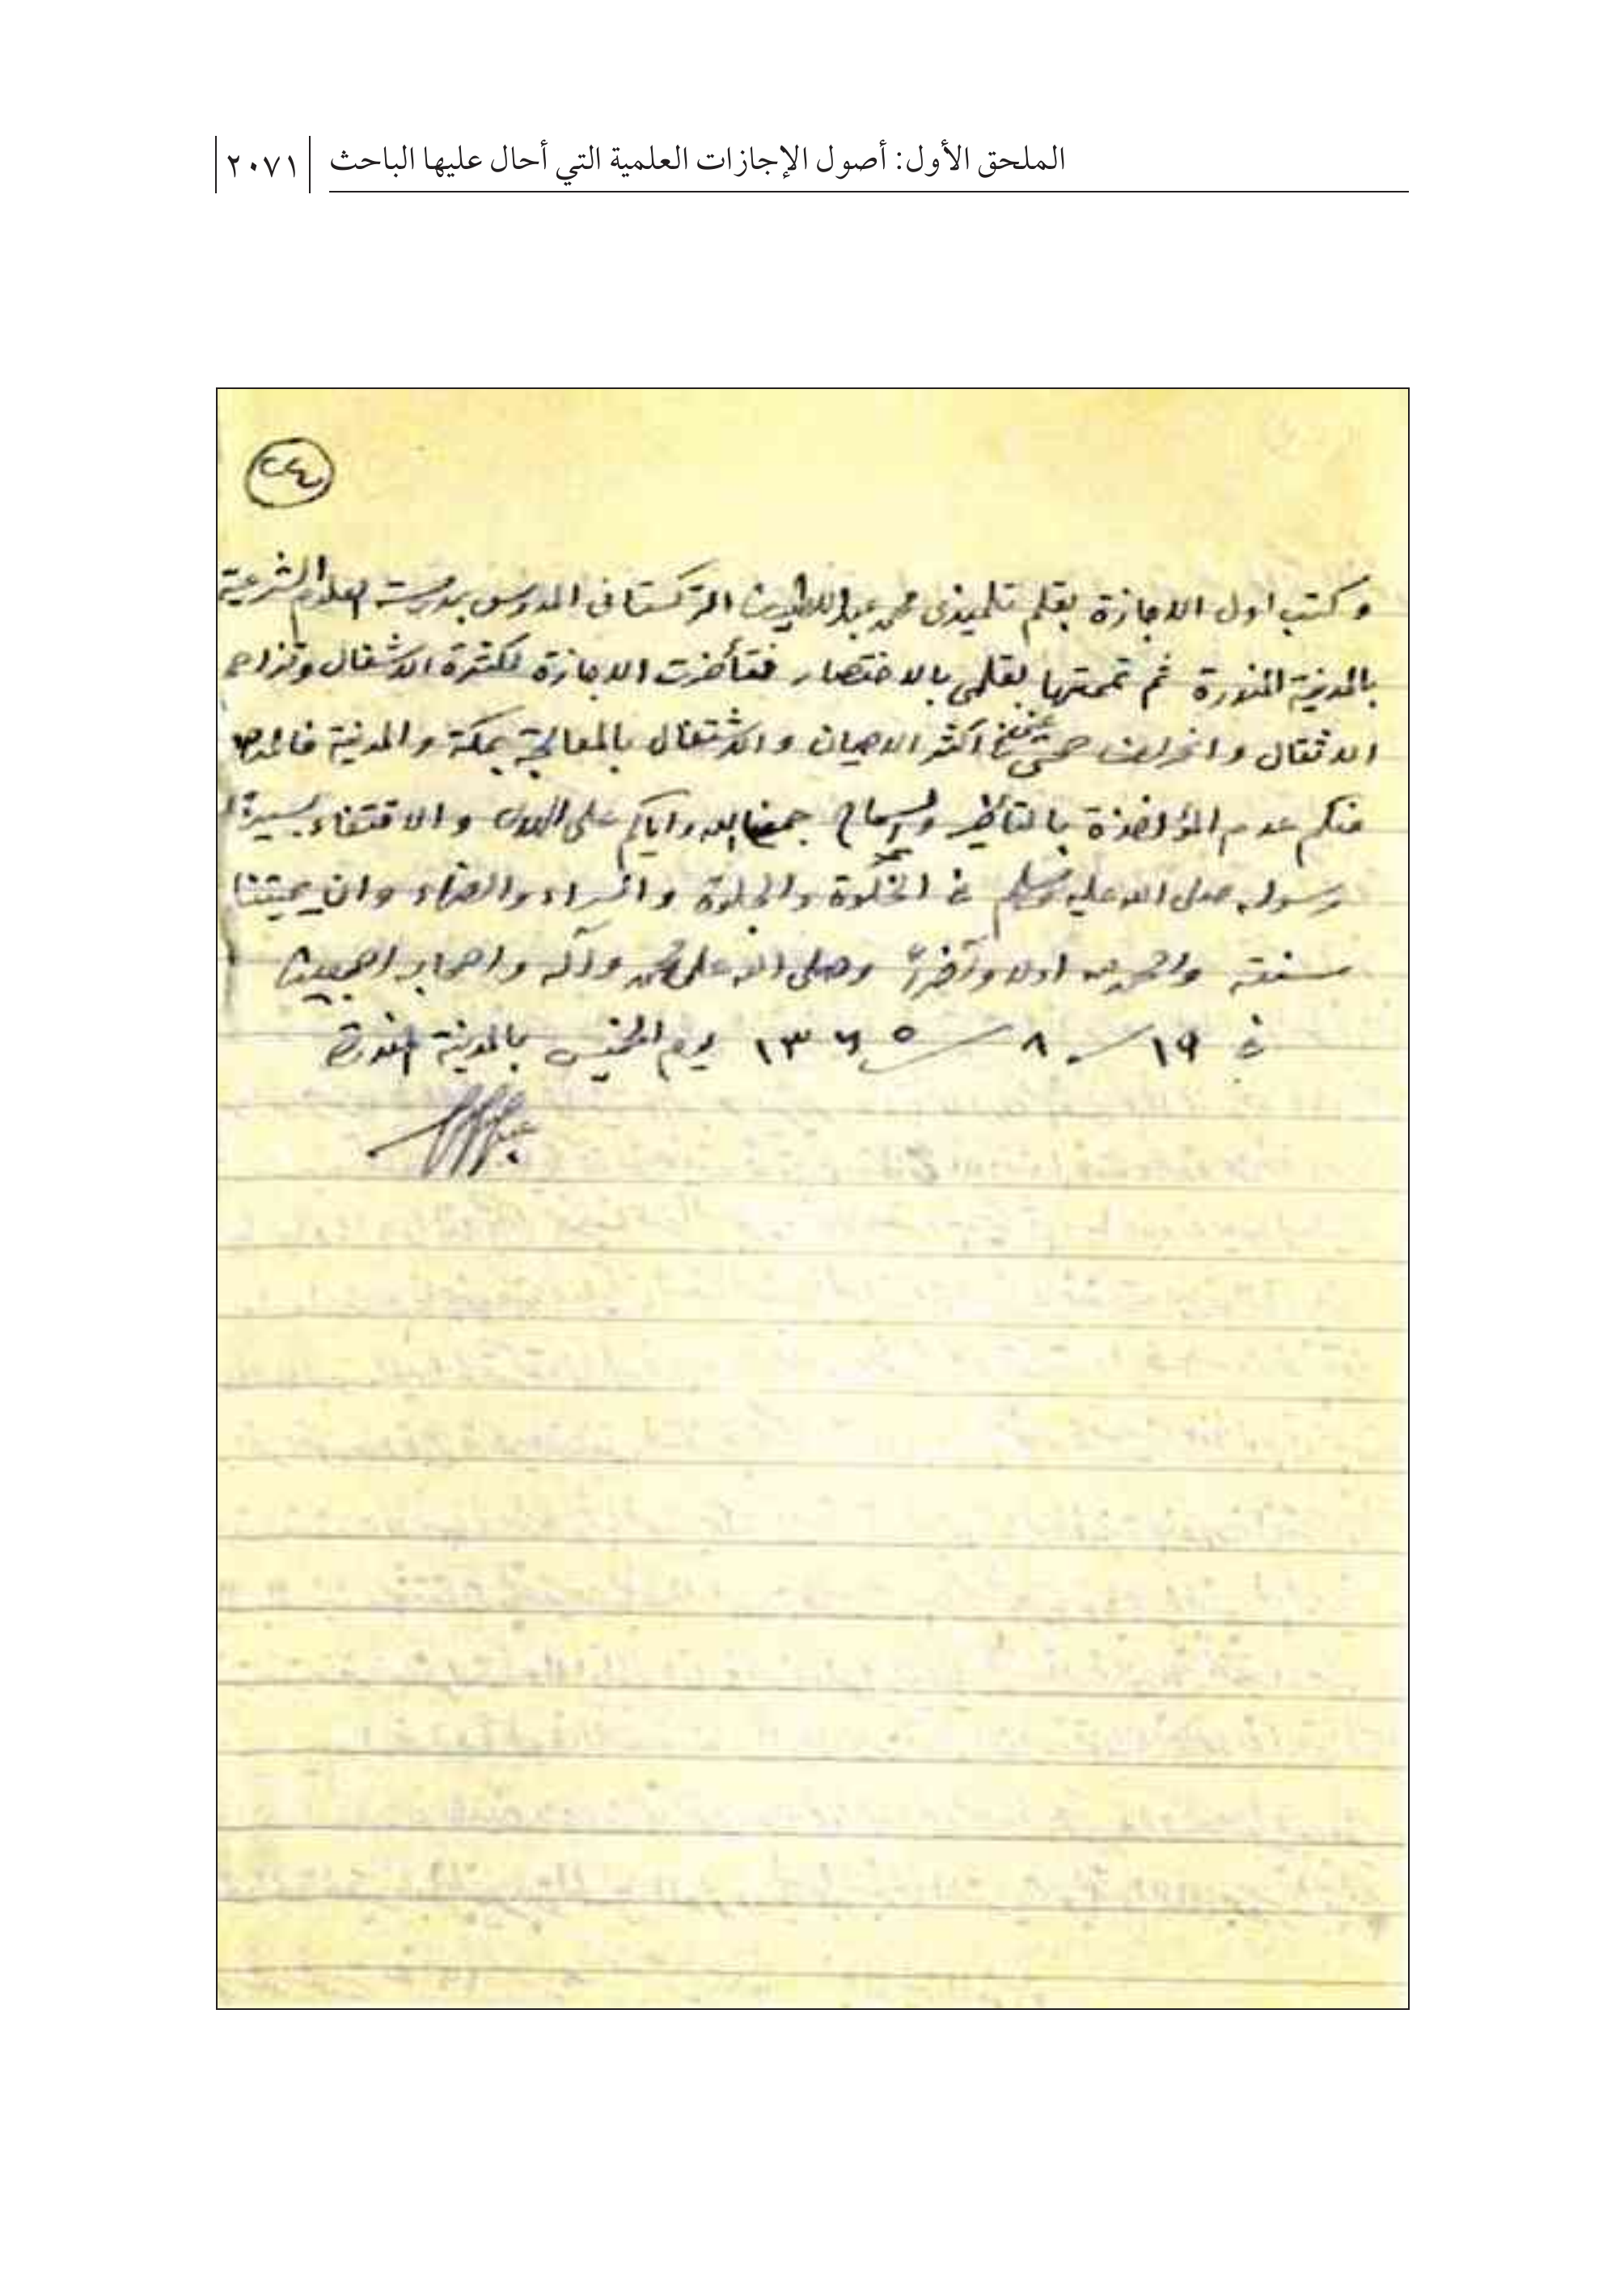 الملحق الأول: أصول الإجازات العلمية التي أحال عليها الباحث ٢٠٧١
٢٤
وكتب اول الاجازة بقلم تلميذى محمد عبداللطيف التركستانى المدرس بمدرسة العلوم الشرعية
بالمدينة المنورة ثم تممتها بقلمى بالاختصار فتأخرت الاجازة لكثرة الاشغال وتزاحم
الاثقال وانحراف صحتى فى اكثر الاحيان والاشتغال بالمعالجة بمكة والمدينة
منكم عدم المؤاخذة بالتأخير والسماح جمعنا الله واياكم على الهدى والاقتفاء بسيرة
رسوله صلى الله عليه وسلم فى الخلوة والجلوة والسراء والضراء وان يميتنا
سنته والحمد لله اولا وآخرا وصلى الله على محمد وآله واصحابه اجمعين
فى ١٩ ـ ٨ ـ ١٣٦٥ يوم الخميس بالمدينة المنورة